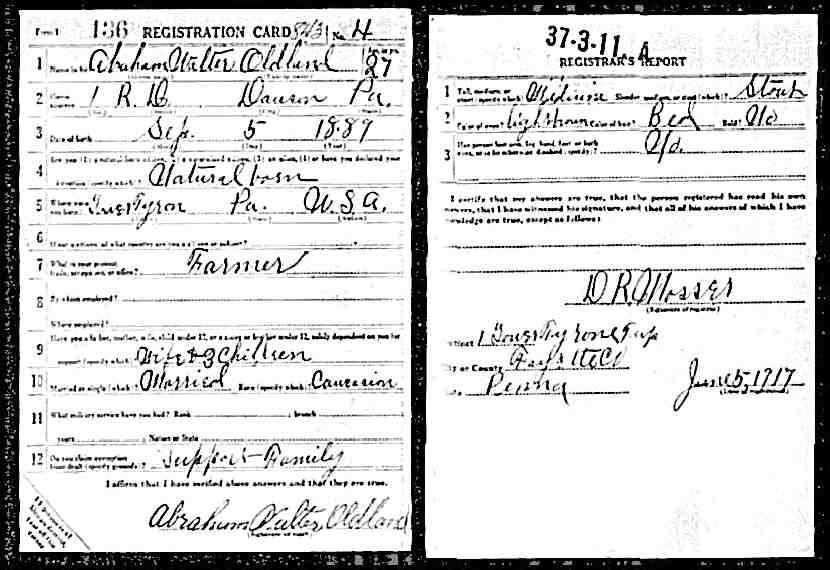 Form 1 136 REGISTRATION CARD 843 No. 4
1 Name in full Abraham Walter Oldland Age, in yrs. 27
2 Home address 1 R. D. Dawson Pa.
3 Date of birth Sep. 5 1889
4 Are you (1) a natural born citizen, (2) a naturalized citizen, (3) an alien, (4) or have you declared your
intention (specify which)? Natural born
5 Where were you born? Tyron Pa. U.S.A.
6 If not a citizen, of what country are you a citizen or subject?
7 What is your present trade, occupation, or office? Farmer
8 By whom employed?
Where employed?
9 Have you a father, mother, wife, child under 12, or a sister or brother under 12, solely dependent on you for
support (specify which)? Wife & 3 Children
10 Married or single (which)? Married Race (specify which)? Caucasion
11 What military service have you had? Rank ; branch
years ; Nation or State
12 Do you claim exemption from draft (specify grounds)? Support Family
I affirm that I have verified above answers and that they are true.
Abraham Walter Oldland
(Signature or mark)
37-3-11. A
REGISTRAR'S REPORT
1 Tall, medium, or short (specify which)? Medium Slender, medium, or stout (which)? Stout
2 Color of eyes? Light brown Color of hair? Red Bald? No
3 Has person lost arm, leg, hand, foot, or both
eyes, or is he otherwise disabled (specify)? No.
I certify that my answers are true, that the person registered has read his own
answers, that I have witnessed his signature, and that all of his answers of which I have
knowledge are true, except as follows:
D. R. Mosser
(Signature of registrar)
Precinct 1 Tyrone Twp
City or County Fayette Co
State Penna June 5, 1917
(Date of registration)